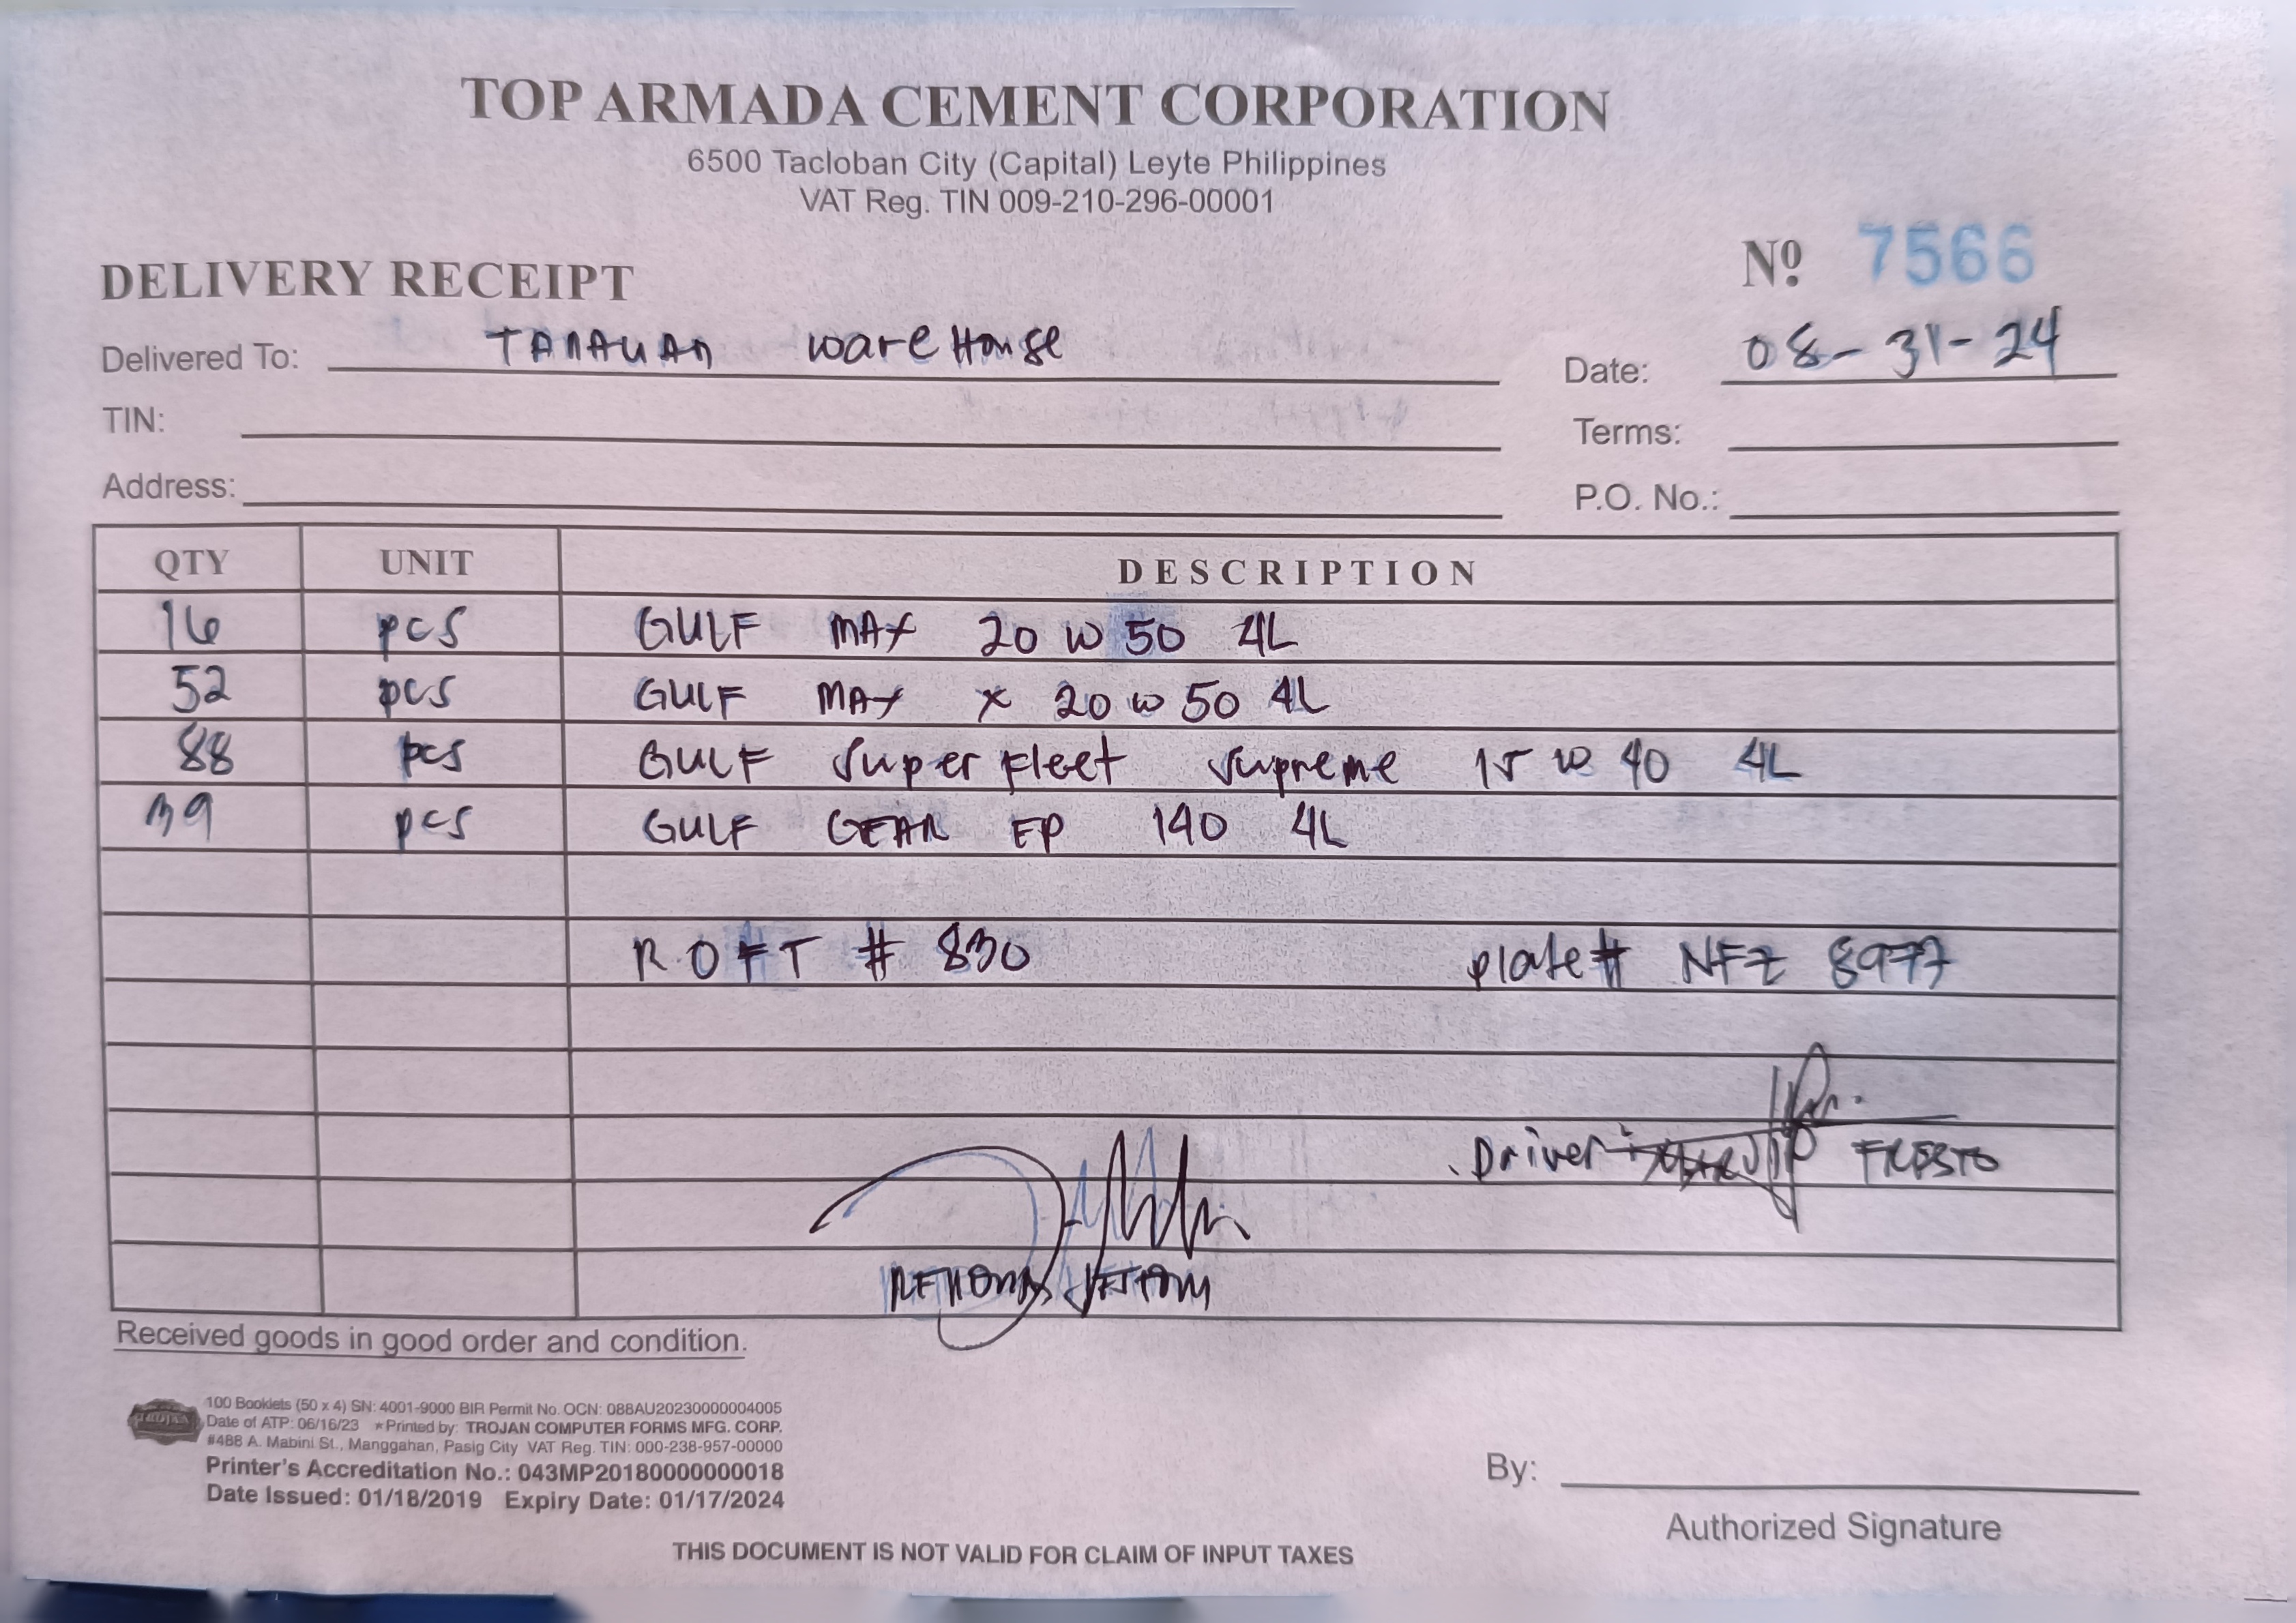 TOP ARMADA CEMENT CORPORATION
6500 Tacloban City (Capital) Leyte Philippines
VAT Reg. TIN 009-210-296-00001
DELIVERY RECEIPT
Nº 7566
Delivered To: TANAUAN WareHouse
Date: 08-31-24
TIN:
Terms:
Address:
P.O. No.:
QTY UNIT DESCRIPTION
16 pcs GULF MAX 20 W 50 4L
52 pcs GULF MAX X 20 W 50 4L
88 pcs GULF Super Fleet Supreme 15 W 40 4L
39 pcs GULF GEAR EP 140 4L
ROFT # 830 plate # NFZ 8977
Driver:
Received goods in good order and condition.
TROJAN
100 Booklets (50 x 4) SN: 4001-9000 BIR Permit No. OCN: 088AU20230000004005
Date of ATP: 06/16/23 ★Printed by: TROJAN COMPUTER FORMS MFG. CORP.
#488 A. Mabini St., Manggahan, Pasig City VAT Reg. TIN: 000-238-957-00000
Printer's Accreditation No.: 043MP20180000000018
Date Issued: 01/18/2019 Expiry Date: 01/17/2024
By:
Authorized Signature
THIS DOCUMENT IS NOT VALID FOR CLAIM OF INPUT TAXES